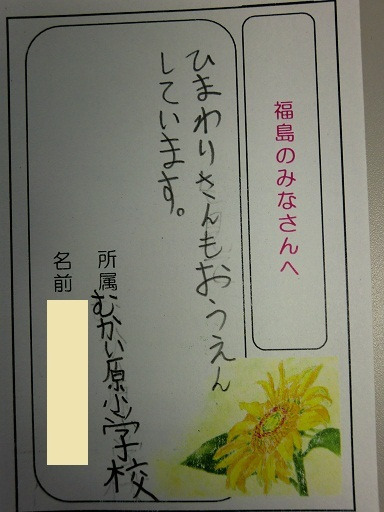 福島のみなさんへ
ひまわりさんもおうえん
しています。
所属 むかい原小学校
名前